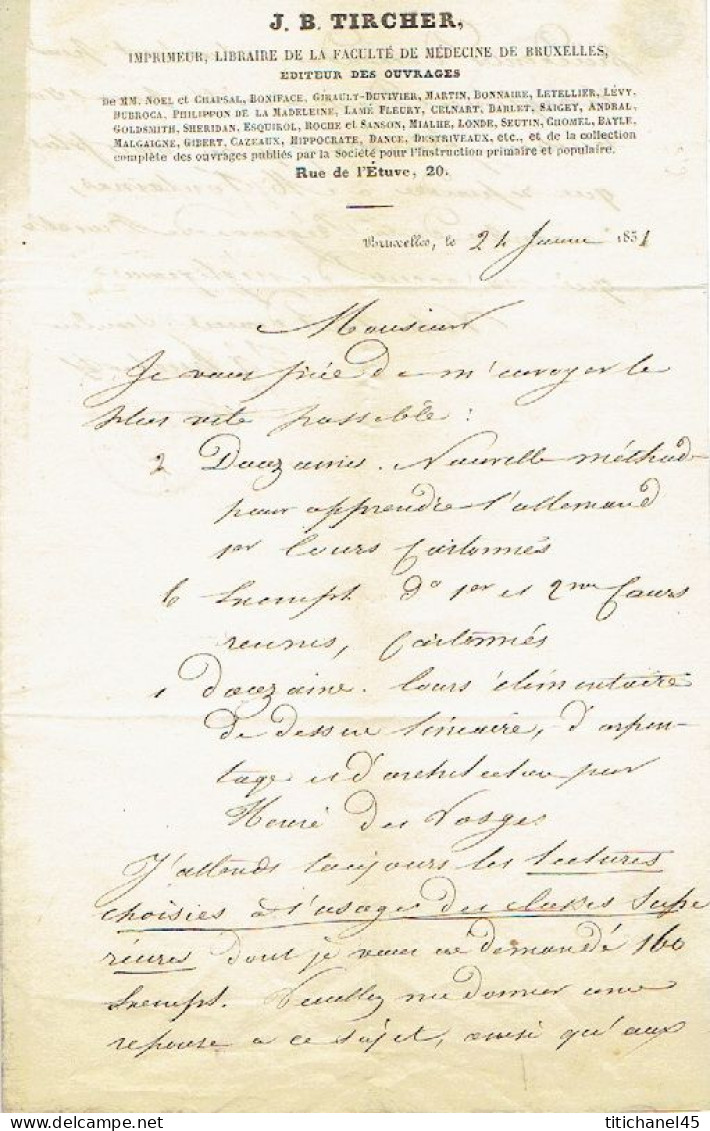 J. B. TIRCHER,
IMPRIMEUR, LIBRAIRE DE LA FACULTÉ DE MÉDECINE DE BRUXELLES,
EDITEUR DES OUVRAGES
De MM. NOEL et CHAPSAL, BONIFACE, GIRAULT-DUVIVIER, MARTIN, BONNAIRE, LETELLIER, LÉVY,
DUBROCA, PHILIPPON DE LA MADELEINE, LAMÉ FLEURY, CELNART, BARLET, SAIGEY, ANDRAL,
GOLDSMITH, SHERIDAN, ESQUIROL, ROCHE et SANSON, MIALHE, LONDE, SEUTIN, CHOMEL, BAYLE,
MALGAIGNE, GIBERT, CAZEAUX, HIPPOCRATE, DANCE, DESTRIVEAUX, etc., et de la collection
complète des ouvrages publiés par la Société pour l'Instruction primaire et populaire.
Rue de l'Étuve, 20.
Bruxelles, le 24 1851
Monsieur
Je vous priée de m'envoyer le
plus vite possible :
2 Douzaines. Nouvelle méthod
pour apprendre l'allemand
1er Cours Cartonnés
6 Exempl. do 1er et 2me Cours
reunis, Cartonnés
1 douzaine. Cours élimentaire
de dessin linéaire, d'arpen-
tage et d'architecture par
Henri des Vosges
J'attends toujours les lectures
choisies à l'usages des classes Supe
rieures dont je vous ai demandé 160
Exempl. Veuillez me donner une
reponse a ce sujet, ainsi qu'aux
titichanel45